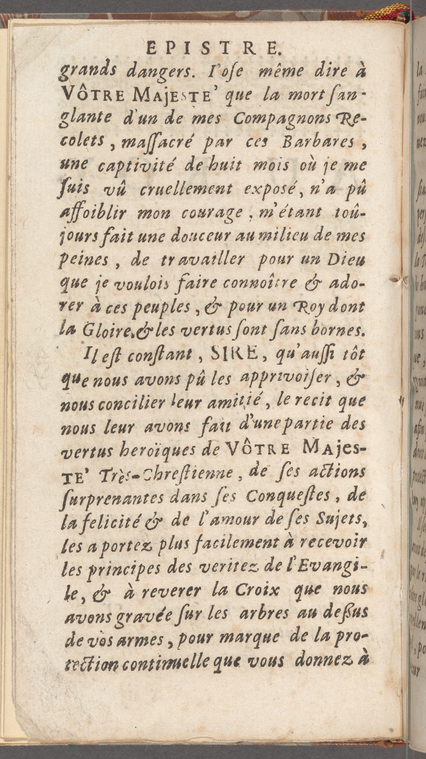 EPISTRE.
grands dangers. I'ose même dire à
VÔTRE MAJESTE' que la mort ſan-
glante d'un de mes Compagnons Re-
colets, maſſacré par ces Barbares,
une captivité de huit mois où je me
ſuis vû cruellement exposé, n'a pû
affoiblir mon courage, m'étant toû-
jours fait une douceur au milieu de mes
peines, de travailler pour un Dieu
que je voulois faire connoître & ado-
rer à ces peuples, & pour un Roy dont
la Gloire, & les vertus ſont ſans bornes.
Il eſt conſtant, SIRE, qu'auſſi tôt
que nous avons pû les apprivoiſer, &
nous concilier leur amitié, le recit que
nous leur avons fait d'une partie des
vertus heroïques de VÔTRE MAJES-
TE' Très-Chreſtienne, de ſes actions
ſurprenantes dans ſes Conqueſtes, de
la felicité & de l'amour de ſes Sujets,
les a portez plus facilement à recevoir
les principes des veritez de l'Evangi-
le, & à reverer la Croix que nous
avons gravée ſur les arbres au deßus
de vos armes, pour marque de la pro-
tection continuelle que vous donnez à